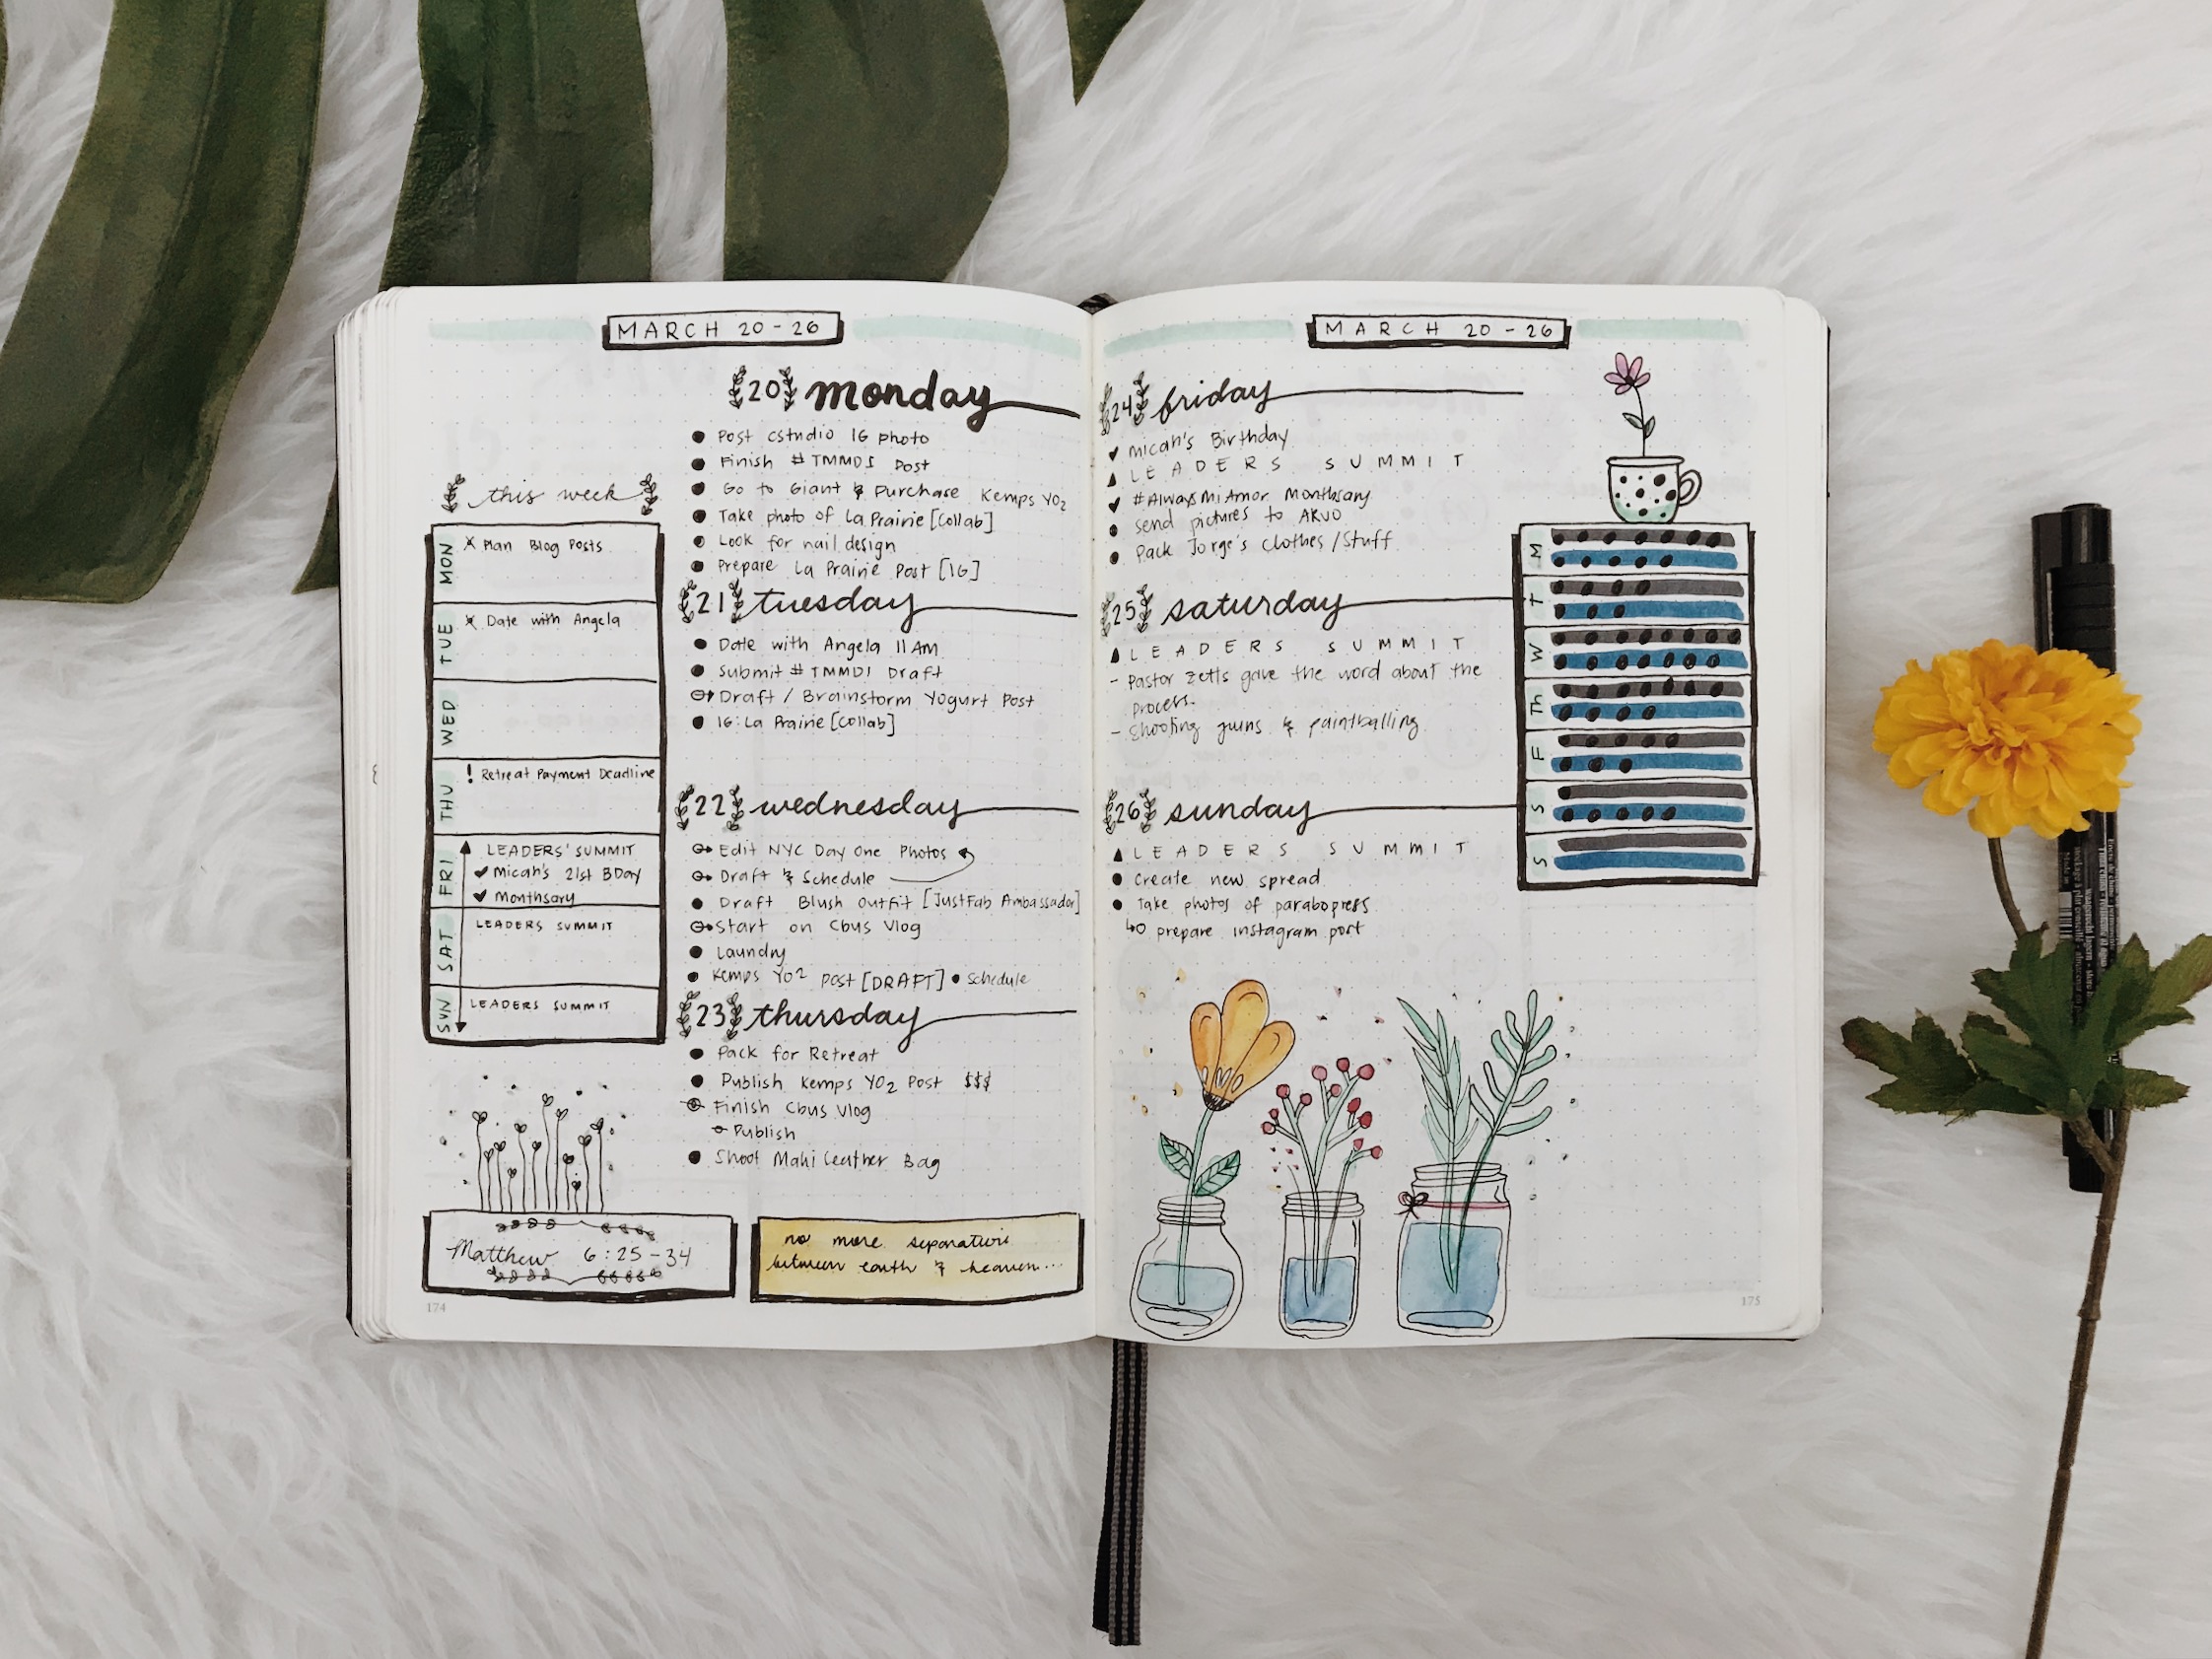 MARCH 20-26
this week
MON
x Plan Blog Posts
TUE
x Date with Angela
WED
THU
! Retreat Payment Deadline
FRI
LEADERS' SUMMIT
✓ Micah's 21st BDay
✓ Monthsary
SAT
LEADERS SUMMIT
SUN
LEADERS SUMMIT
Matthew 6:25-34
174
20 monday
• Post cstudio IG photo
• Finish #TMMDI Post
• Go to Giant & Purchase Kemps YO2
• Take photo of La Prairie [collab]
• Look for nail design
• Prepare La Prairie Post [IG]
21 tuesday
• Date with Angela 11AM
• Submit #TMMDI Draft
Draft / Brainstorm Yogurt Post
• IG: La Prairie [collab]
22 wednesday
Edit NYC Day One Photos
Draft & Schedule
• Draft Blush Outfit [JustFab Ambassador]
Start on Cbus Vlog
• Laundry
• Kemps YO2 post [DRAFT] • schedule
23 thursday
• Pack for Retreat
• Publish Kemps YO2 Post $$$
Finish Cbus Vlog
Publish
• Shoot Mahi Leather Bag
no more separation
between earth & heaven...
MARCH 20-26
24 friday
✓ Micah's Birthday
▲ LEADERS SUMMIT
✓ #AlwaysMiAmor Monthsary
• send pictures to
• Pack Jorge's Clothes / Stuff
25 saturday
▲ LEADERS SUMMIT
- Pastor gave the word about the
process.
- Shooting guns & paintballing
26 sunday
▲ LEADERS SUMMIT
• Create new spread
• Take photos of parabopress
prepare instagram post
M
T
W
Th
F
S
S
175